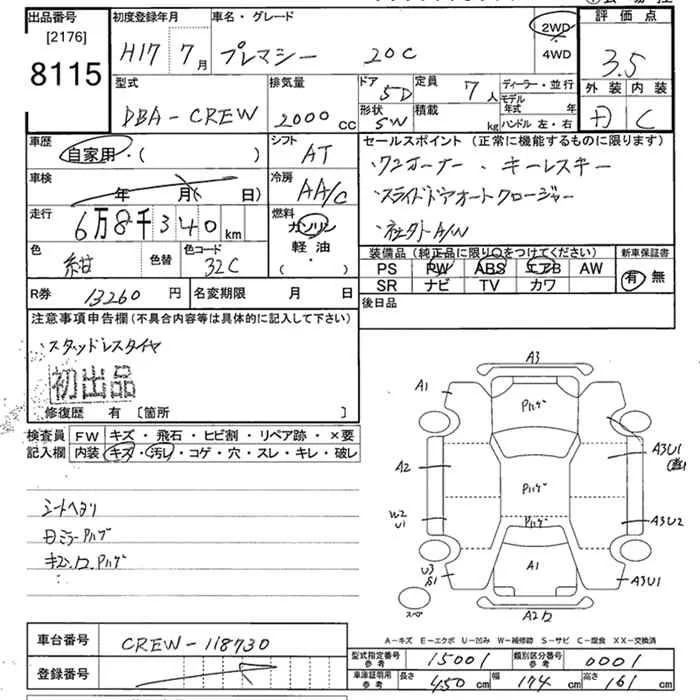 出品番号 初度登録年月 車名・グレード 評価点
[2176]
8115
H17 7月 プレマシー 20C 2WD 3.5
4WD
型式 排気量 ドア 定員 7人 ディーラー・並行 外装 内装
DBA-CREW 2000cc 5D モデル年式 年 C
形状 5W 積載 kg ハンドル 左・右
車歴 シフト セールスポイント (正常に機能するものに限ります)
自家用・( ) AT ・ワンオーナー ・キーレスキー
車検 年 月( 日) 冷房 AA/C ・スライドドアオートクロージャー
走行 6万8千340km 燃料 ガソリン ・社外A/W
軽油・( )
色 紺 色替 色コード 32C
装備品 (純正品に限り○をつけてください) 新車保証書
PS PW ABS エアB AW 有 無
SR ナビ TV カワ
R券 13260円 名変期限 月 日 後日品
注意事項申告欄 (不具合内容等は具体的に記入して下さい)
・スタッドレスタイヤ
初出品
修復歴 有 [箇所 ]
検査員 FW キズ・飛石・ヒビ割・リペア跡・×要
記入欄 内装 キズ・汚レ・コゲ・穴・スレ・キレ・破レ
シートヘタリ
日ミラーPハゲ
キズ、ソロ、Pハゲ
A3
A1 Pハゲ
A2 Pハゲ A3U1
W2 Pハゲ A3U2
U1
U3 A1 A3U1
S1
スペ A2
A-キズ E-エクボ U-凹み W-補修跡 S-サビ C-腐食 XX-交換済
車台番号 CREW-118730
登録番号
型式指定番号 参考 15001 類別区分番号 参考 0001
車庫証明用 参考 長さ 450cm 幅 174cm 高さ 161cm